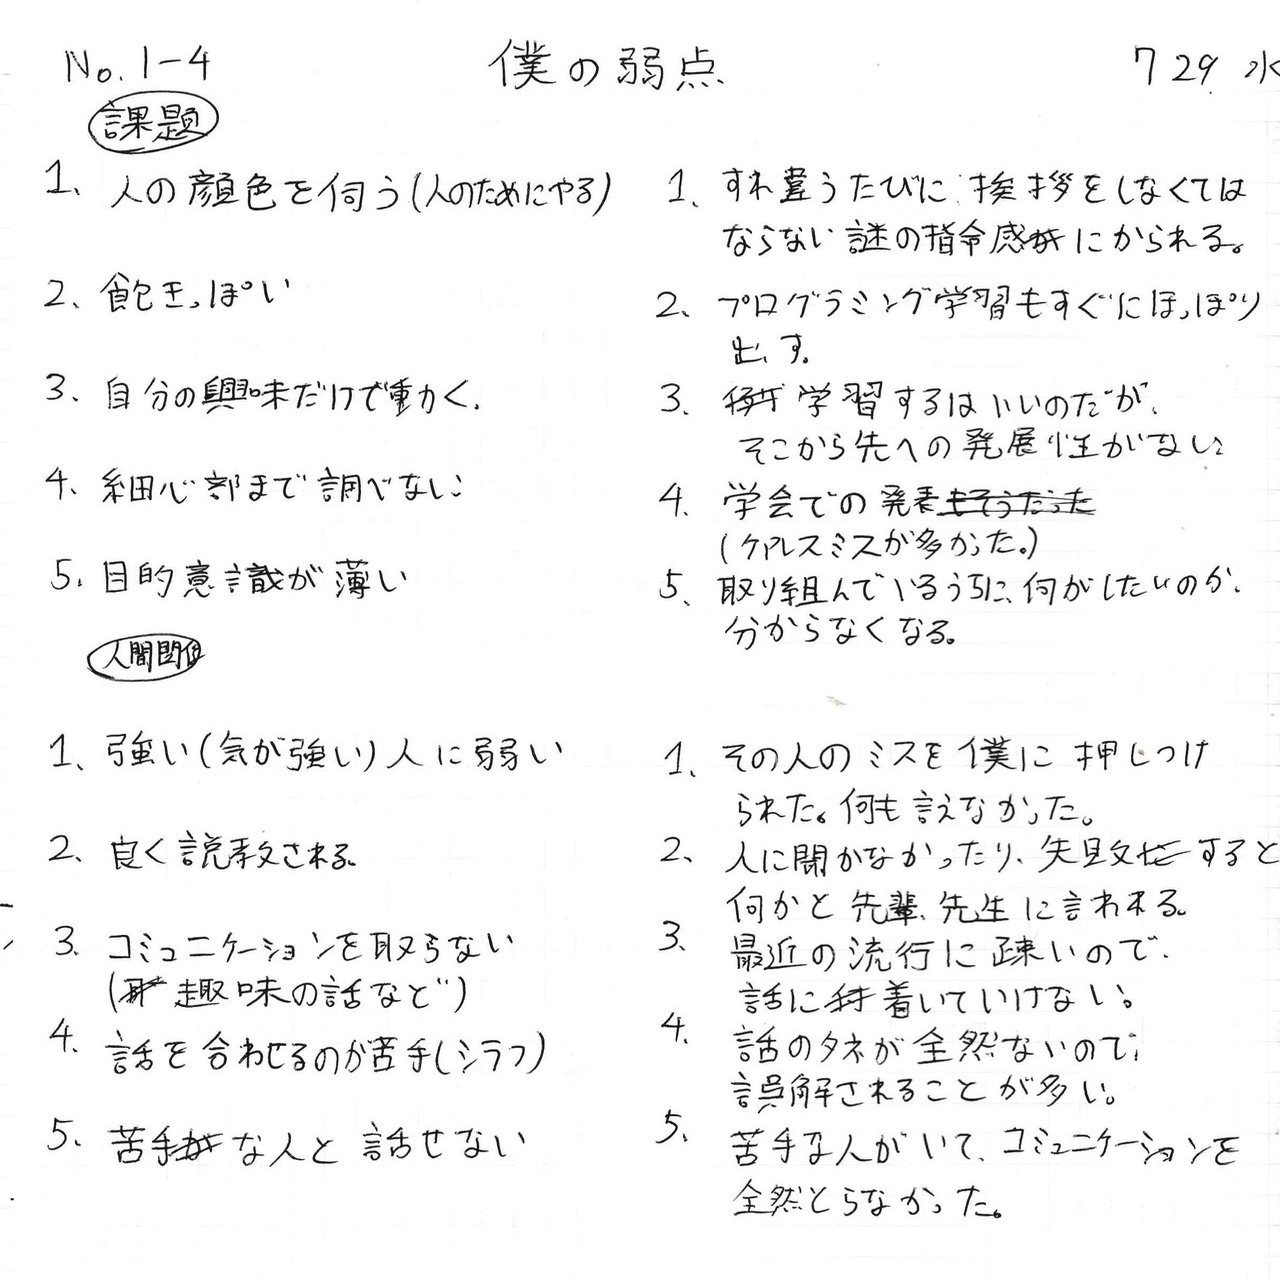 No. 1-4 僕の弱点 7 29 水
課題
1、人の顔色を伺う(人のためにやる)
2、飽きっぽい
3、自分の興味だけで動く.
4、細心部まで調べない
5、目的意識が薄い
1、すれ違うたびに挨拶をしなくては
ならない謎の指令感にかられる。
2、プログラミング学習もすぐにほっぽり
出す。
3、学習するはいいのだが、
そこから先への発展性がない
4、学会での発表もそうだった
(ケアレスミスが多かった。)
5、取り組んでいるうちに、何がしたいのか、
分からなくなる。
人間関係
1、強い(気が強い)人に弱い
2、良く説教される。
3、コミュニケーションを取らない
(趣味の話など)
4、話を合わせるのが苦手(シラフ)
5、苦手な人と話せない
1、その人のミスを僕に押しつけ
られた。何も言えなかった。
2、人に聞かなかったり、失敗すると
何かと先輩、先生に言われる。
3、最近の流行に疎いので、
話に着いていけない。
4、話のタネが全然ないので、
誤解されることが多い。
5、苦手な人がいて、コミュニケーションを
全然とらなかった。